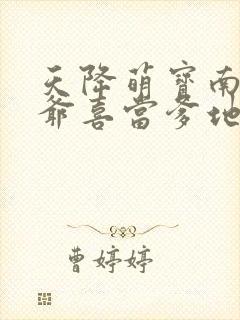 天降萌寶南
爺喜當爹地
曹婷婷